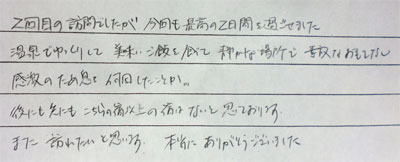 2回目の訪問でしたが 今回も最高の2日間を過ごせました
温泉でゆっくりして 美味しいご飯を食べて 静かな場所で 贅沢なおもてなし
感激のため息を何回したことか。
後にも先にもこちらの宿以上の宿はないと思っております。
また訪れたいと思います。 本当にありがとうございました